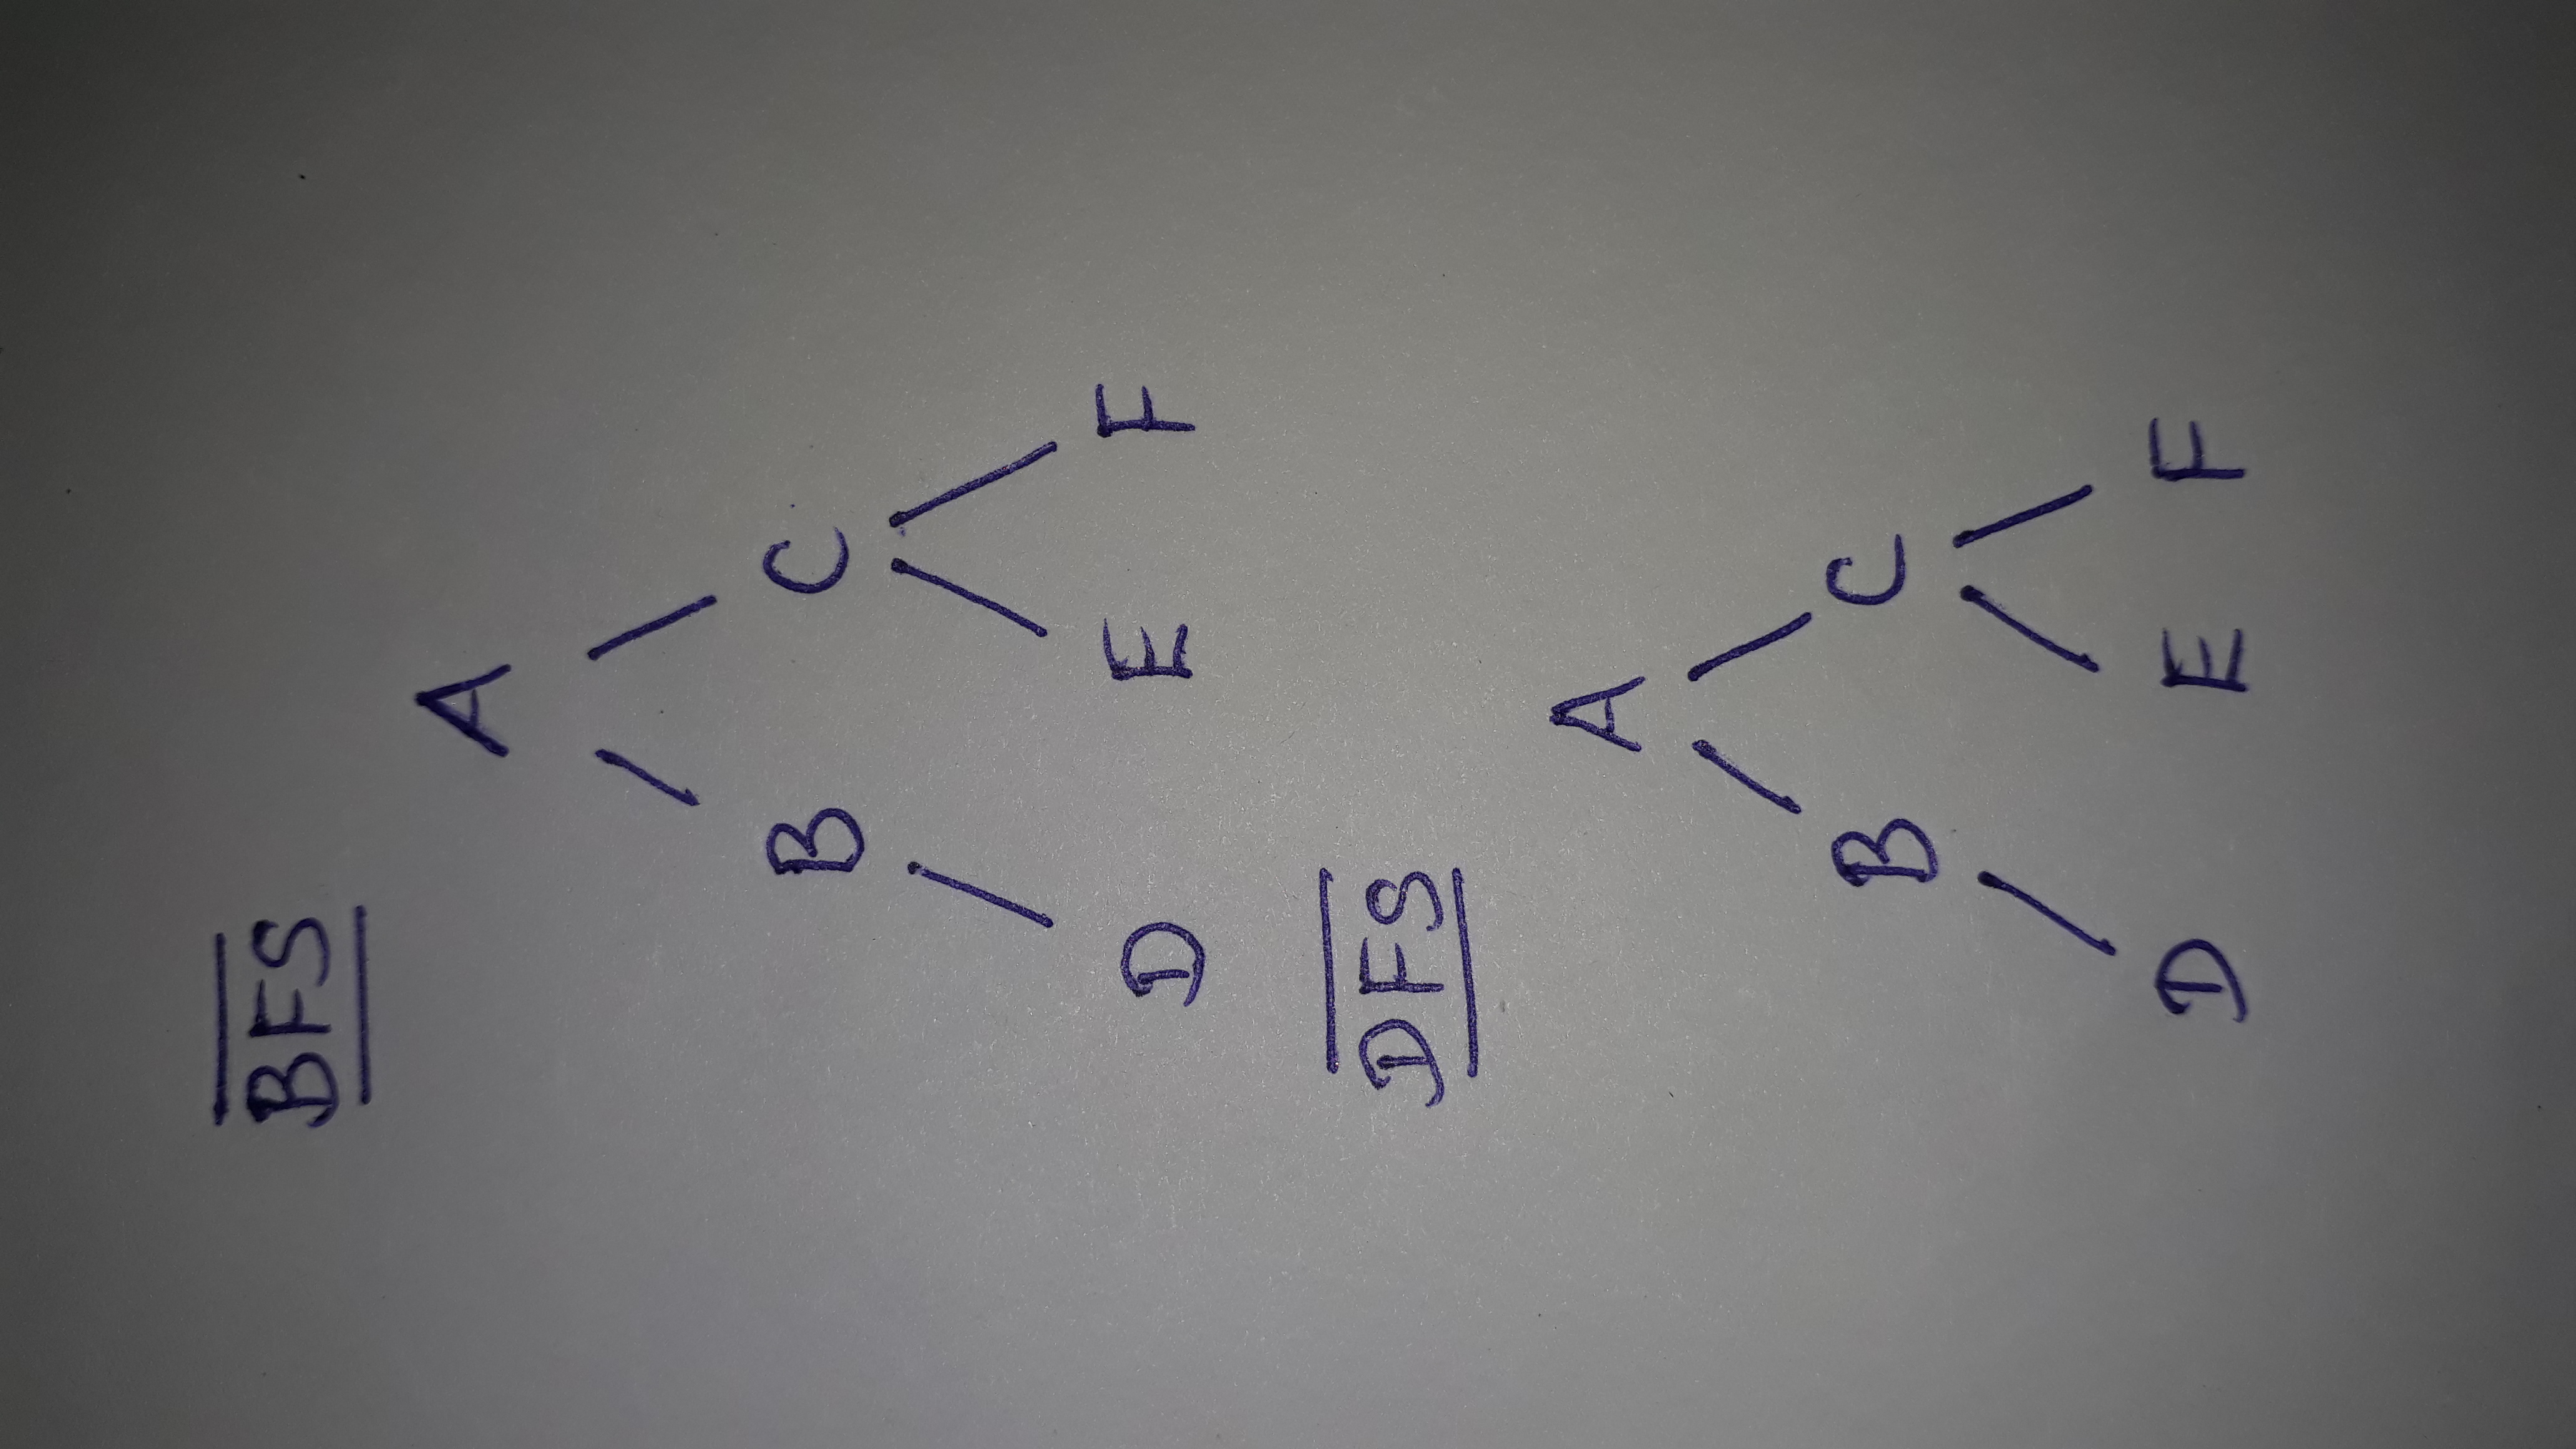 BFS
A
B C
D E F
DFS
A
B C
D E F